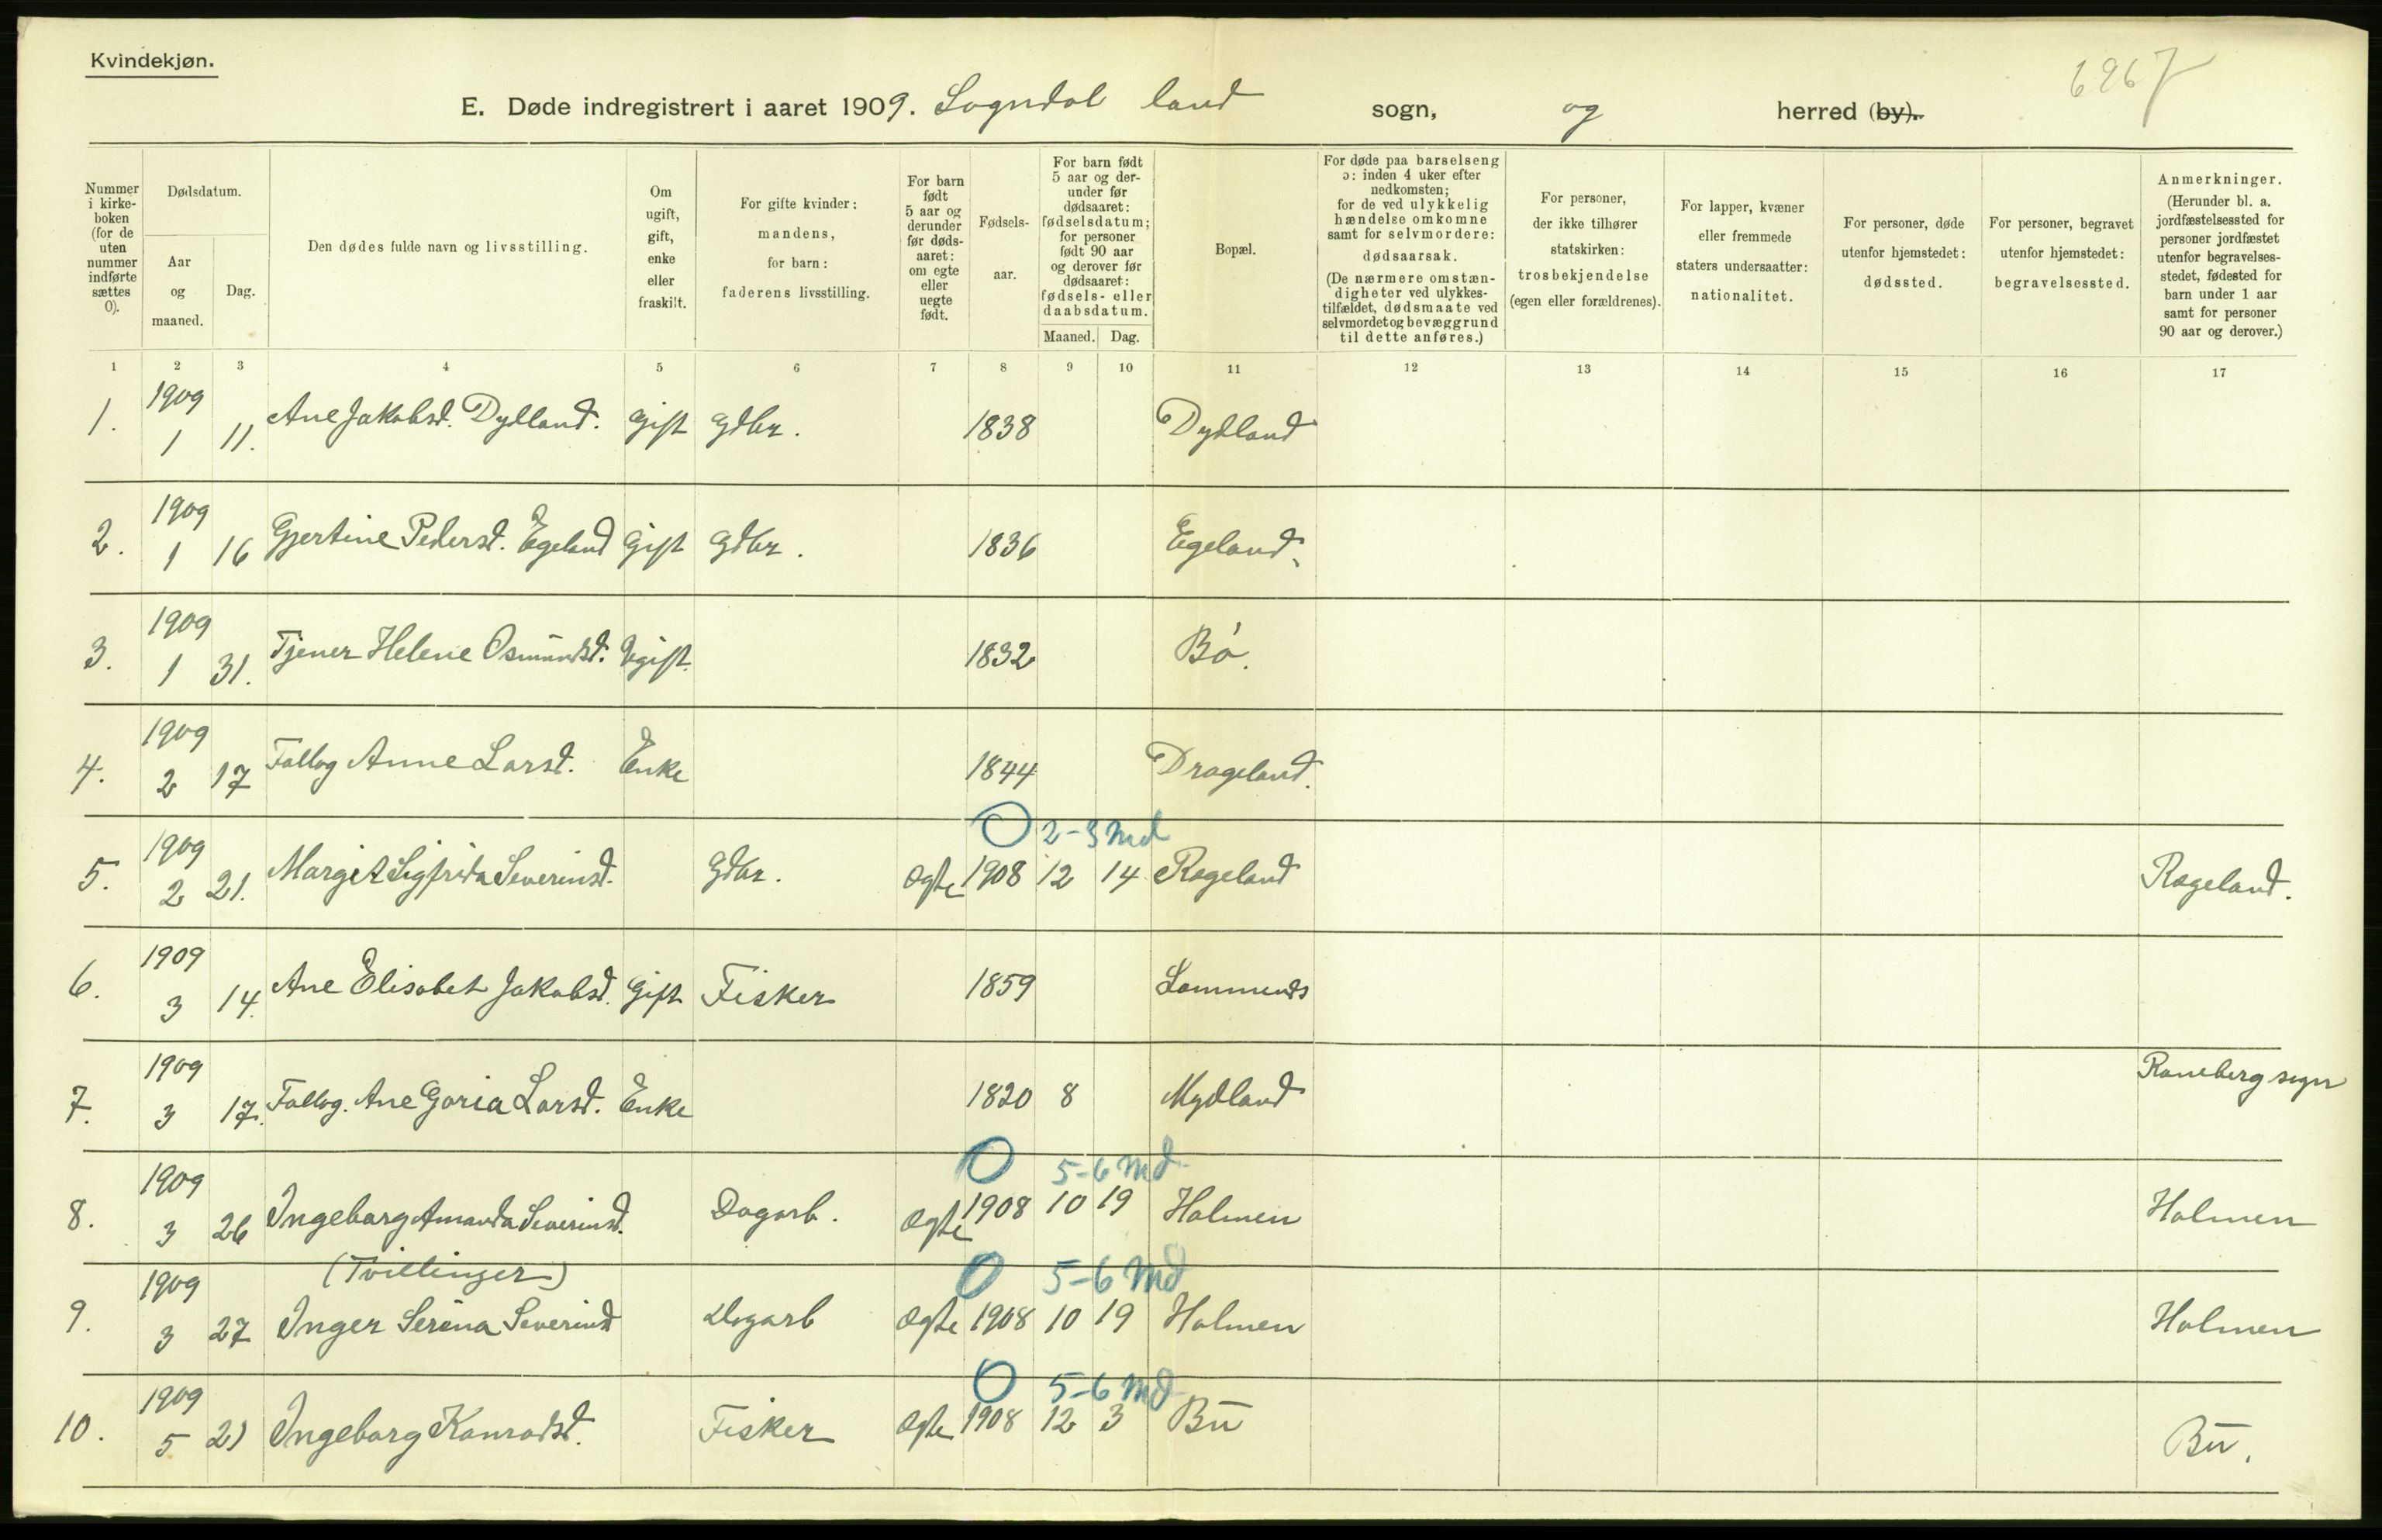 Kvindekjøn.
6267
E. Døde indregistrert i aaret 1909. Sogndal land sogn, og herred (by).
Nummer i kirkeboken (for de uten nummer indførte sættes 0).
Dødsdatum.
Aar og maaned.
Dag.
Den dødes fulde navn og livsstilling.
Om ugift, gift, enke eller fraskilt.
For gifte kvinder: mandens, for barn: faderens livsstilling.
For barn født 5 aar og derunder før dødsaaret: om egte eller uegte født.
Fødselsaar.
For barn født 5 aar og derunder før dødsaaret: fødselsdatum; for personer født 90 aar og derover før dødsaaret: fødsels- eller daabsdatum.
Maaned. Dag.
Bopæl.
For døde paa barselseng ɔ: inden 4 uker efter nedkomsten; for de ved ulykkelig hændelse omkomne samt for selvmordere: dødsaarsak. (De nærmere omstændigheter ved ulykkestilfældet, dødsmaate ved selvmordet og bevæggrund til dette anføres.)
For personer, der ikke tilhører statskirken: trosbekjendelse (egen eller forældrenes).
For lapper, kvæner eller fremmede staters undersaatter: nationalitet.
For personer, døde utenfor hjemstedet: dødssted.
For personer, begravet utenfor hjemstedet: begravelsessted.
Anmerkninger. (Herunder bl. a. jordfæstelsessted for personer jordfæstet utenfor begravelsesstedet, fødested for barn under 1 aar samt for personer 90 aar og derover.)
1 2 3 4 5 6 7 8 9 10 11 12 13 14 15 16 17
1. 1909 1 11. Ane Jakobsd. Dydland. Gift Gdbr. 1838 Dydland
2. 1909 1 16 Gjertine Pedersd. Egeland Gift Gdbr. 1836 Egeland.
3. 1909 1 31. Tjener Helene Osmundsd. Ugift. 1832 Bö.
4. 1909 2 17 Follog Anne Larsd. Enke 1844 Drageland.
0 2-3 Md
5. 1909 2 21. Margit Sigfrida Severinsd. Gdbr. Egte 1908 12 14 Rageland Rageland.
6. 1909 3 14. Ane Elisabet Jakobsd. Gift Fisker 1859 Lammenes
7. 1909 3 17. Follog. Ane Goria Larsd. Enke 1820 8 Mydland Raneberg sogn
0 5-6 Md
8. 1909 3 26 Ingeborg Amanda Severinsd. Dagarb. Egte 1908 10 19 Holmen Holmen
(Tvillinger) 0 5-6 Md
9. 1909 3 27 Inger Serina Severinsd Dagarb Egte 1908 10 19 Holmen Holmen
0 5-6 Md
10. 1909 5 21 Ingeborg Konradsd. Fisker Egte 1908 12 3 Bū Bū.